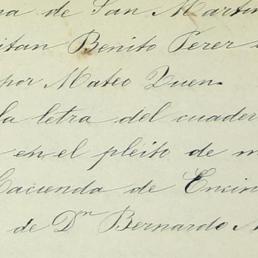 na de San Martin
itan Benito Perer
por Mateo Quen
la letra del cuader
en el pleito de m
Hacienda de Encin
de Dn Bernardo